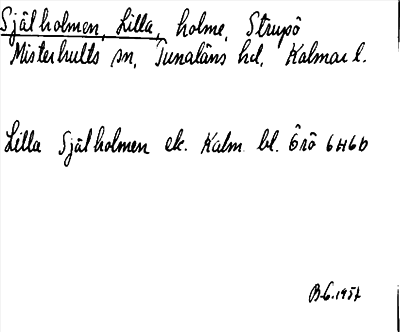 Själholmen, Lilla, holme, Strupö
Misterhults sn, Tunaläns hd, Kalmar l.
Lilla Själholmen ek. Kalm. bl. Örö 6H6b
B.G. 1957